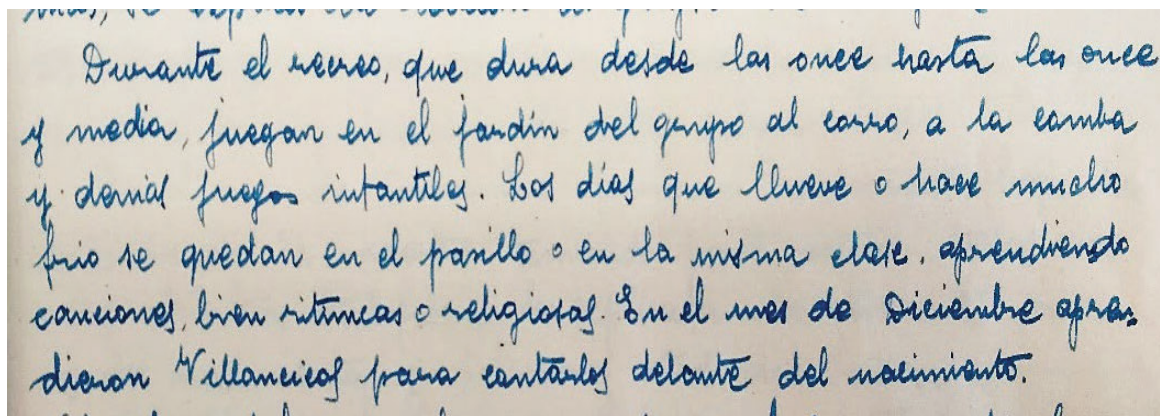 Durante el recreo, que dura desde las once hasta las once
y media, juegan en el jardín del grupo al corro, a la comba
y demás juegos infantiles. Los días que llueve o hace mucho
frio se quedan en el pasillo o en la misma clase, aprendiendo
canciones, bien ritmicas o religiosas. En el mes de Diciembre apren-
dieron Villancicos para cantárlos delante del nacimiento.